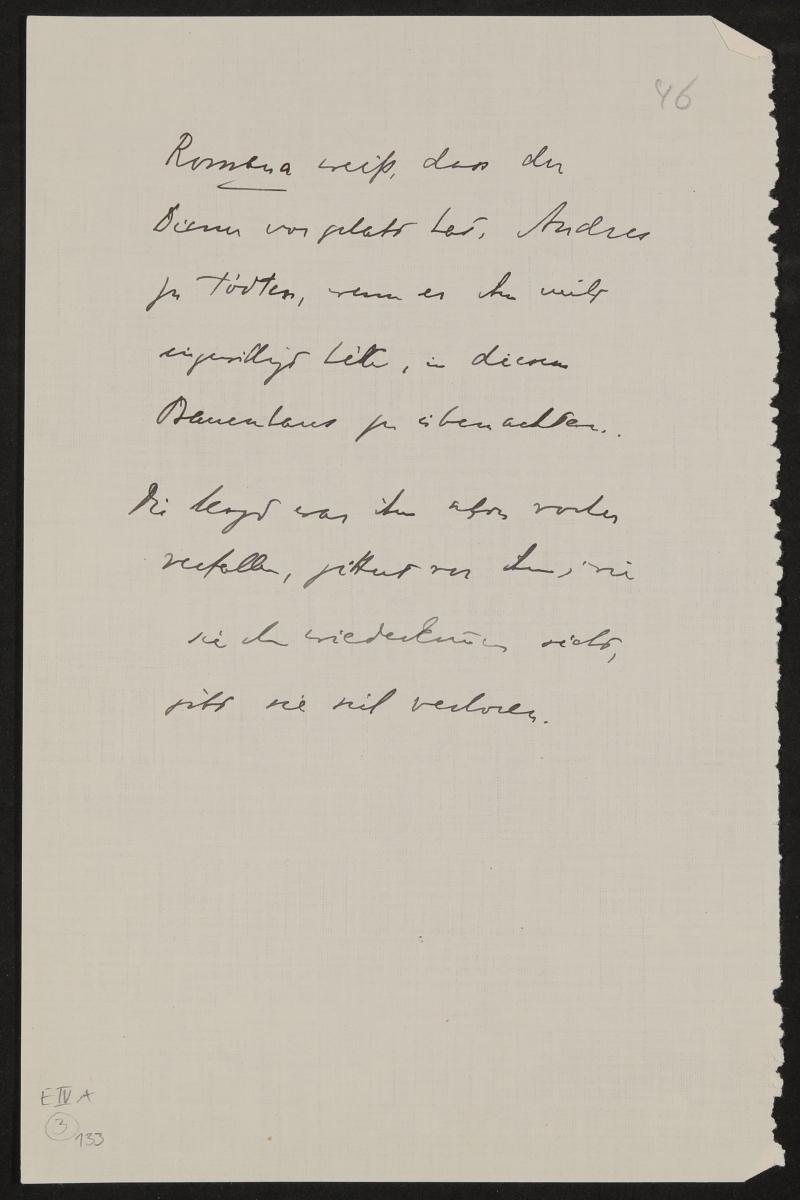 46
Romana weiß, dass der
Diener vorgehabt hat, Andres
zu tödten, wenn er ihm nicht
eingewilligt hätte, in diesem
Bauernhaus zu übernachten..
Die Magd war ihm schon vorher
verfallen, zittert vor ihm, wie
sie ihn wiederkommen sieht,
gibt sie sich verloren.
E IV A
3
133